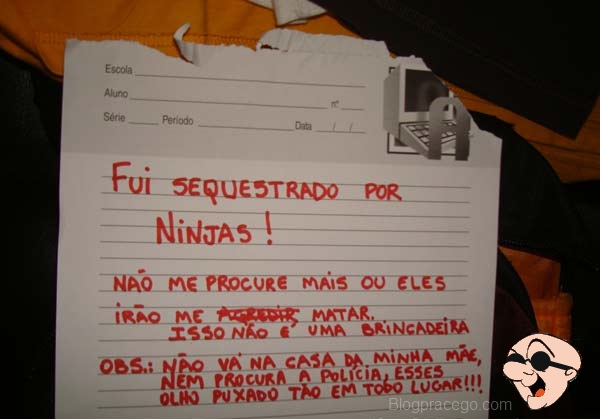 Escola
Aluno nº
Série Período Data / /
FUI SEQUESTRADO POR
NINJAS!
NAÕ ME PROCURE MAIS OU ELES
IRÃO ME AGREDIR MATAR.
ISSO NÃO É UMA BRINCADEIRA
OBS.: NÃO VÁ NA CASA DA MINHA MÃE,
NEM PROCURA A POLÍCIA, ESSES
OLHO PUXADO TÃO EM TODO LUGAR!!!
Blogpracego.com